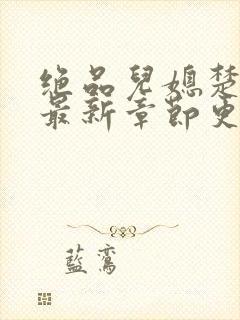 绝品兒媳楚
最新章節史
藍鸞